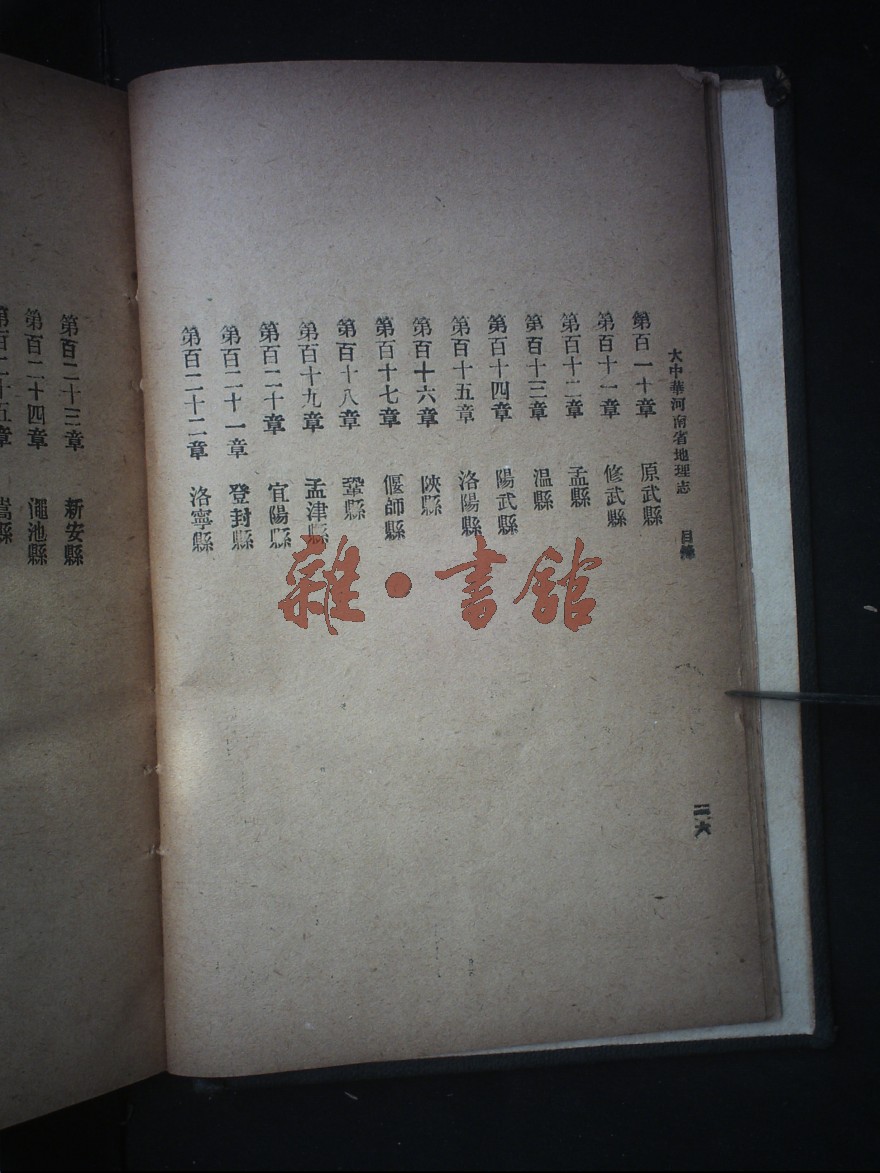 大中華河南省地理志 目錄 二六
第百一十章 原武縣
第百十一章 修武縣
第百十二章 孟縣
第百十三章 温縣
第百十四章 陽武縣
第百十五章 洛陽縣
第百十六章 陝縣
第百十七章 偃師縣
第百十八章 鞏縣
第百十九章 孟津縣
第百二十章 宜陽縣
第百二十一章 登封縣
第百二十二章 洛寧縣
第百二十三章 新安縣
第百二十四章 澠池縣
第百二十五章 嵩縣
雜·書館